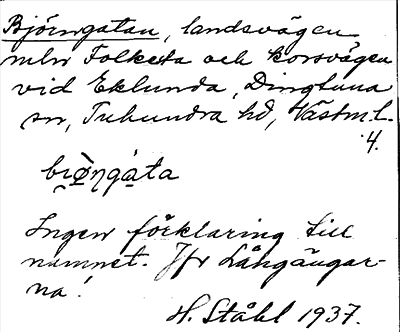 Björngatan, landsvägen
mln Folkesta och korsvägen
vid Eklunda, Dingtuna
sn, Tuhundra hd, Västm. l.
4.
bi̯ø̀ṇga̱ta
Ingen förklaring till
namnet. Jfr Långängar-
na!
H. Ståhl 1937.